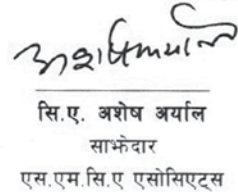 सि.ए. अशेष अर्याल
साझेदार
एस.एम.सि.ए एसोसिएट्स